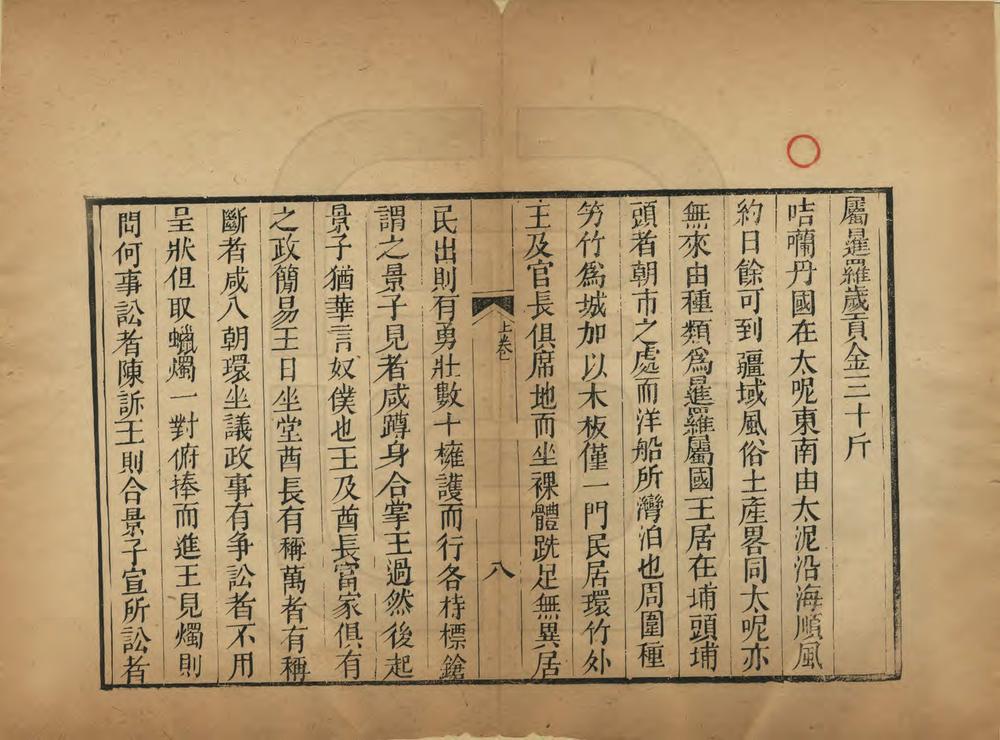 屬暹羅歲貢金三十斤
咭囒丹國在太呢東南由太泥沿海順風
約日餘可到疆域風俗土產畧同太呢亦
無來由種類爲暹羅屬國王居在埔頭埔
頭者朝市之處而洋船所灣泊也周圍種
竻竹爲城加以木板僅一門民居環竹外
王及官長俱席地而坐裸體跣足無異居
上卷
八
民出則有勇壯數十擁護而行各持標鎗
謂之景子見者咸蹲身合掌王過然後起
景子猶華言奴僕也王及酋長富家俱有
之政簡易王日坐堂酋長有稱萬者有稱
斷者咸入朝環坐議政事有争訟者不用
呈狀但取蠟燭一對俯捧而進王見燭則
問何事訟者陳訴王則合景子宣所訟者